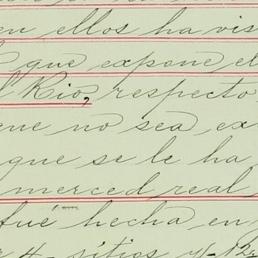 en ellos ha vis
que expone el
l Rio, respecto
ene no sea, ex
que se le ha
merced real
fué hecha en
4 sitios y